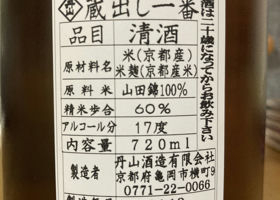 蔵出し一番
お酒は二十歳になってからお飲み下さい
品目 清酒
原材料名 米(京都産)
米麹(京都産米)
原料米 山田錦100%
精米歩合 60%
アルコール分 17度
内容量 720ml
製造者 丹山酒造有限会社
京都府亀岡市横町9
0771-22-0066